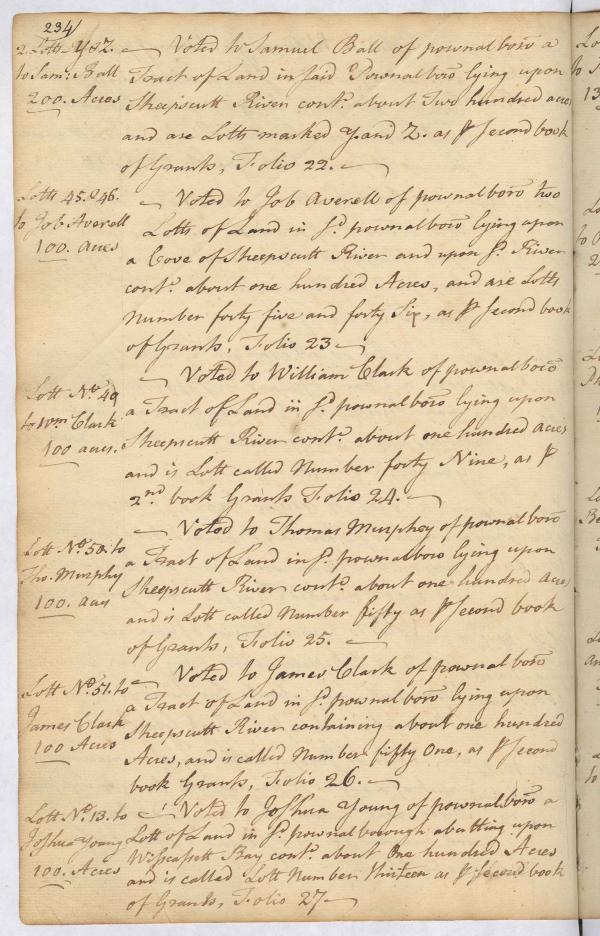 234/
2. Lotts Y&Z.
to Sam: Ball
200. Acres
Voted to Samuel Ball of pownalboro a
Tract of Land in said Pownalboro lying upon
Sheepscutt River cont:d about Two hundred acres
and are Lotts marked Y. and Z. as p second book
of Grants, Folio 22.
Lotts 45.&46.
to Job Averell
100. Acres
Voted to Job Averell of pownalboro two
Lotts of Land in s:d pownalboro lying upon
a Cove of Sheepscutt River and upon s:d River
cont:d about one hundred Acres, and are Lotts
Number forty five and forty Six, as p second book
of Grants, Folio 23
Lott No: 49
to Wm Clark
100 acres.
Voted to William Clark of pownalboro
a Tract of Land in s:d pownalboro lying upon
Sheepscutt River cont:d about one hundred acres
and is Lott called Number forty Nine, as p
2nd book Grants Folio 24.
Lott No: 50. to
Tho. Murphy
100. Acres
Voted to Thomas Murphey of pownalboro
a Tract of Land in s:d pownalboro lying upon
Sheepscutt River cont:d about one hundred Acres
and is Lott called Number fifty as p second book
of Grants, Folio 25.
Lott No: 51. to
James Clark
100 Acres
Voted to James Clark of pownalboro
a Tract of Land in s:d pownalboro lying upon
Sheepscutt River containing about one hundred
Acres, and is called Number fifty One, as p second
book Grants, Folio 26.
Lott No: 13. to
Joshua Young
100. Acres
Voted to Joshua Young of pownalboro a
Lott of Land in s:d pownalborough abutting upon
Wiscassett Bay cont:d about One hundred Acres
and is called Lott Number Thirteen as p second book
of Grants, Folio 27